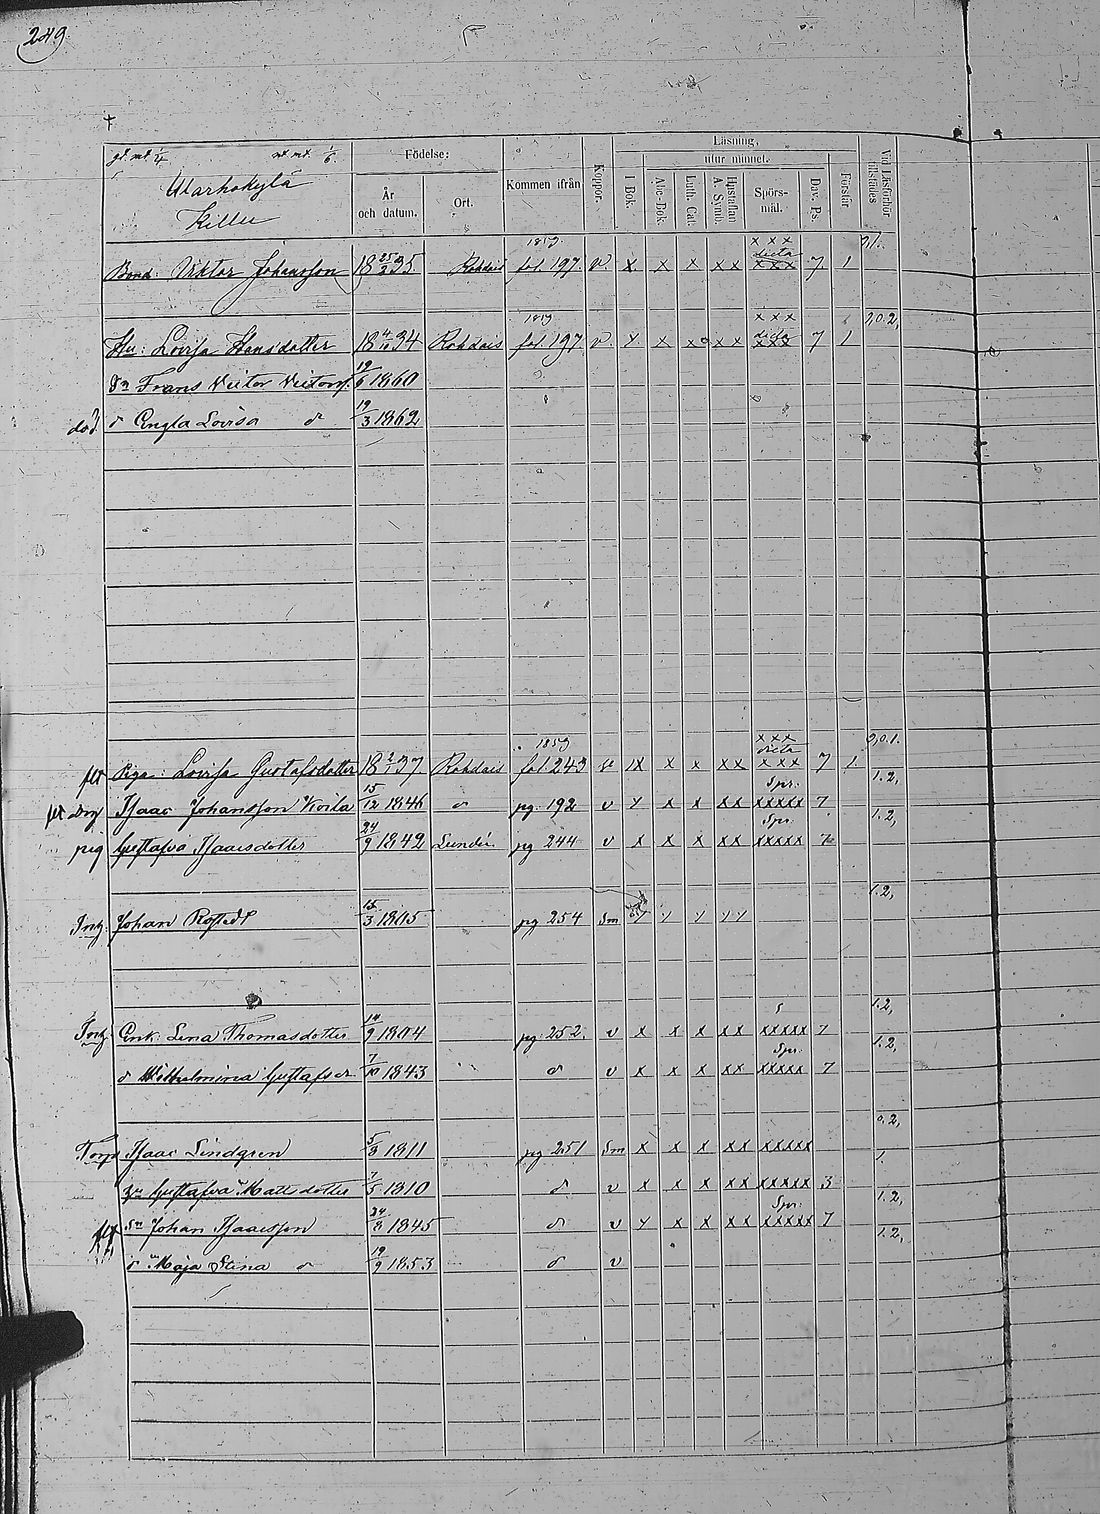 249
gl. mt. 1/4 nt mt. 1/6.
Killu
Födelse:
År och datum.
Ort.
Kommen ifrån
Koppor.
Läsning,
utur minnet.
I Bok.
Abc-Bok.
Luth. Cat.
Hustaflan A. Symb.
Spörs-mål.
Dav. Ps.
Förstår
Vid Läsförhör tillstädes
1859. x x x
Bond: Viktor Johansson 18 25/2 35 Rohdais fol. 197. v. x x x x x dicta x x x 7 1
1859 x x x 2,0.2,
Hu: Lovisa Hansdotter 18 4/10 34 Rohdais fol 197 v x x x x x dicta x x x 7 1
Sn Frans Victor Victorss. 19/6 1860
död d Engla Lovisa d 19/3 1862
1859 x x x 2,0.1.
flt Piga: Lovisa Gustafsdotter 18 2/1 37 Rohdais fol 243 v x x x x x dicta x x x 7 1.
1.2,
flt Drg Isaac Johansson Koila 15/12 1846 d pg. 192 v x x x x x Spr. xxxxx 7
1.2,
pig Gustafva Isaacsdotter 24/9 1842 pg 244 v x x x x x Spr. xxxxx 7
1.2,
Inh. Johan Rostedt 15/3 1805 pg 254 Sm x x x x x
1.2,
Inh. Enk. Lena Thomasdotter 14/9 1804 pg. 252. v x x x x x S xxxxx 7
1.2,
d Wilhelmina Gustafsdr 7/10 1843 d v x x x x x Spr. xxxxx 7
0.2,
Torp Isaac Lindgren 5/8 1811 pg 251 Sm x x x x x xxxxx
1.
Hu Gustafva Matsdotter 7/5 1810 d v x x x x x xxxxx 3
1.2,
flt Sn Johan Isaacsson 24/8 1845 d v x x x x x Spr. xxxxx 7
1.2,
d Maja Stina d 19/9 1853 d v